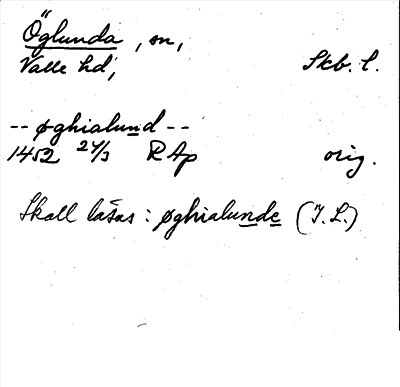 Öglunda, sn,
Valle hd, Skb. l.
-- øghialund --
1452 24/3 RAp orig.
Skall läsas : øghialunde (I.L.)